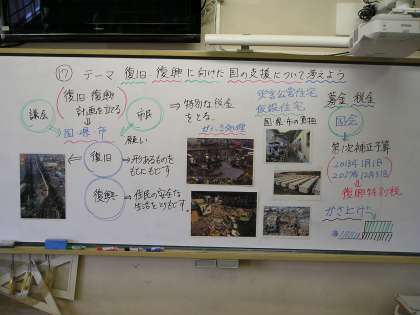 ⑰ テーマ 復旧 復興に向けた国の支援について考えよう
議会
復旧 復興
計画を立てる
市民
国・県・市
願い
復旧
形あるものを
もとにもどす
復興
住民の安全な
生活をとりもどす
特別な税金
をとる。
がれき処理
災害公営住宅
仮設住宅
国・県・市の負担
募金 税金
国会
第1次補正予算
2013年1月1日
2037年12月31日
復興特別税
かさ上げ